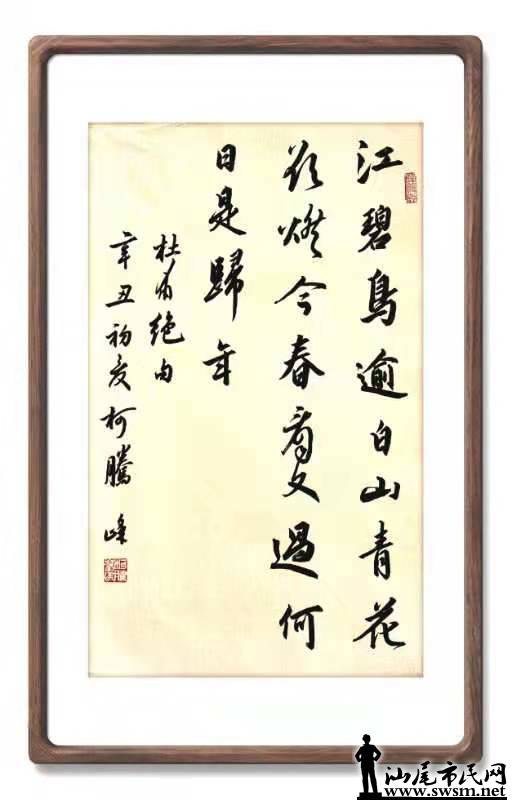 江碧鳥逾白山青花
欲燃今春看又過何
日是歸年
杜甫絕句
辛丑初夏柯騰峰
汕尾市民网
www.swsm.net